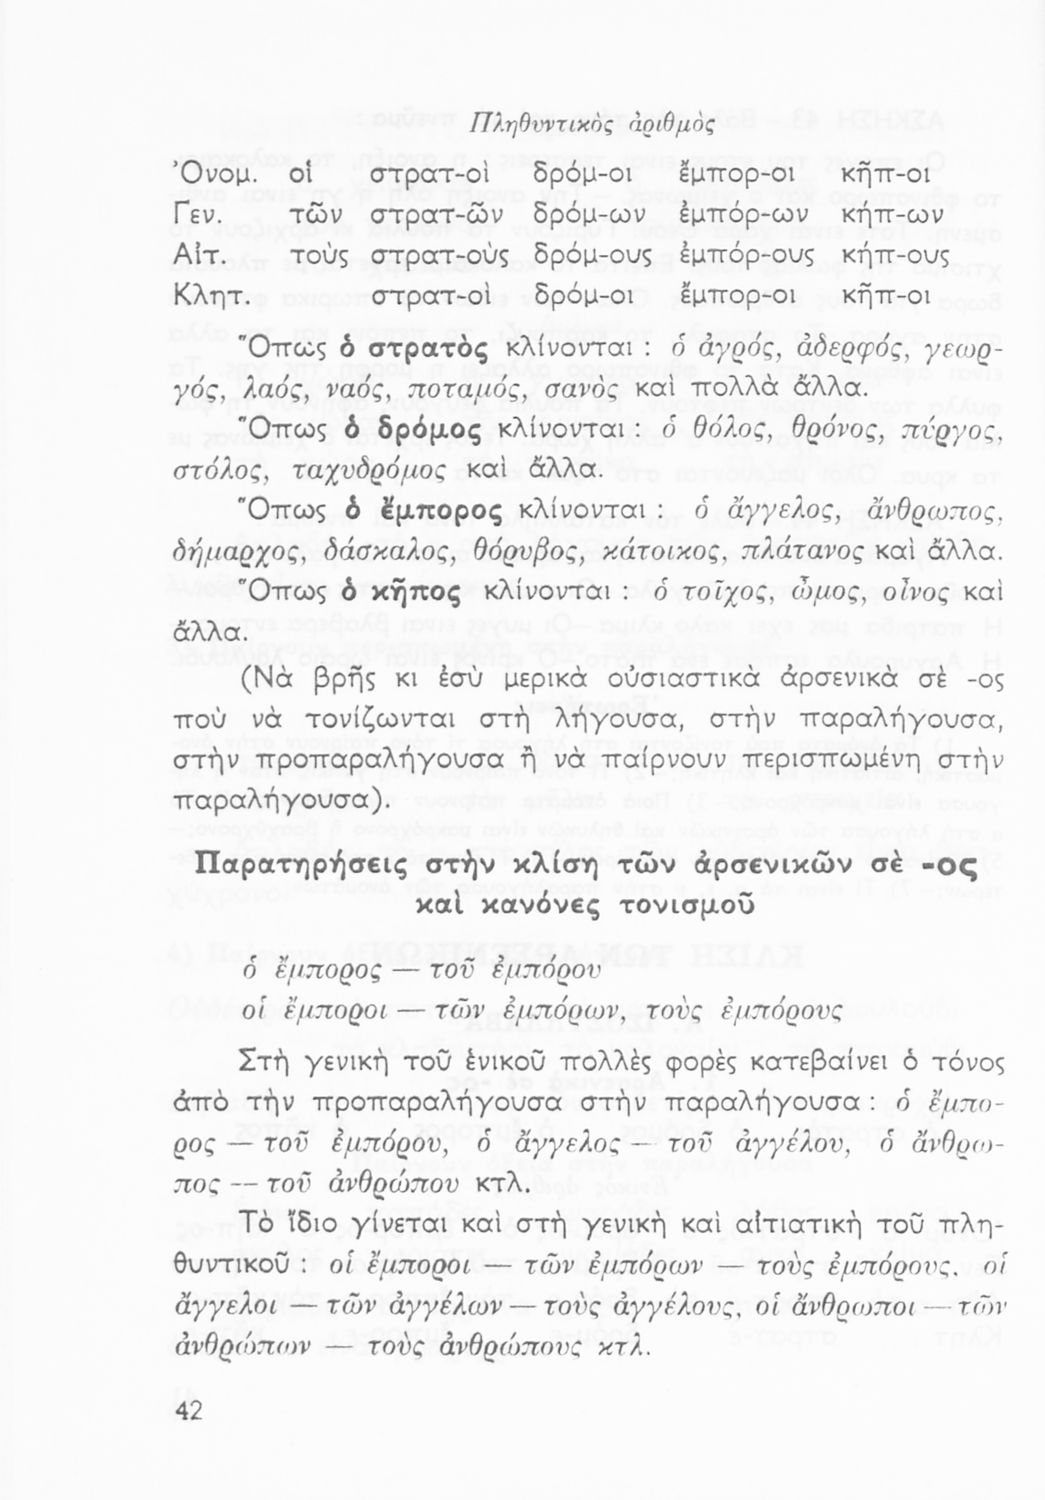 Πληθυντικὸς ἀριθμὸς
Ὀνομ. οἱ στρατ-οὶ δρόμ-οι ἔμπορ-οι κῆπ-οι
Γεν. τῶν στρατ-ῶν δρόμ-ων ἐμπόρ-ων κήπ-ων
Αἰτ. τοὺς στρατ-οὺς δρόμ-ους ἐμπόρ-ους κήπ-ους
Κλητ. στρατ-οὶ δρόμ-οι ἔμπορ-οι κῆπ-οι
Ὅπως ὁ στρατὸς κλίνονται : ὁ ἀγρός, ἀδερφός, γεωρ-
γός, λαός, ναός, ποταμός, σανὸς καὶ πολλὰ ἄλλα.
Ὅπως ὁ δρόμος κλίνονται : ὁ θόλος, θρόνος, πύργος,
στόλος, ταχυδρόμος καὶ ἄλλα.
Ὅπως ὁ ἔμπορος κλίνονται : ὁ ἄγγελος, ἄνθρωπος,
δήμαρχος, δάσκαλος, θόρυβος, κάτοικος, πλάτανος καὶ ἄλλα.
Ὅπως ὁ κῆπος κλίνονται : ὁ τοῖχος, ὦμος, οἶνος καὶ
ἄλλα.
(Νὰ βρῆς κι ἐσὺ μερικὰ οὐσιαστικὰ ἀρσενικὰ σὲ -ος
ποὺ νὰ τονίζωνται στὴ λήγουσα, στὴν παραλήγουσα,
στὴν προπαραλήγουσα ἢ νὰ παίρνουν περισπωμένη στὴν
παραλήγουσα).
Παρατηρήσεις στὴν κλίση τῶν ἀρσενικῶν σὲ -ος
καὶ κανόνες τονισμοῦ
ὁ ἔμπορος — τοῦ ἐμπόρου
οἱ ἔμποροι — τῶν ἐμπόρων, τοὺς ἐμπόρους
Στὴ γενικὴ τοῦ ἑνικοῦ πολλὲς φορὲς κατεβαίνει ὁ τόνος
ἀπὸ τὴν προπαραλήγουσα στὴν παραλήγουσα : ὁ ἔμπο-
ρος — τοῦ ἐμπόρου, ὁ ἄγγελος — τοῦ ἀγγέλου, ὁ ἄνθρω-
πος — τοῦ ἀνθρώπου κτλ.
Τὸ ἴδιο γίνεται καὶ στὴ γενικὴ καὶ αἰτιατικὴ τοῦ πλη-
θυντικοῦ : οἱ ἔμποροι — τῶν ἐμπόρων — τοὺς ἐμπόρους, οἱ
ἄγγελοι — τῶν ἀγγέλων — τοὺς ἀγγέλους, οἱ ἄνθρωποι — τῶν
ἀνθρώπων — τοὺς ἀνθρώπους κτλ.
42